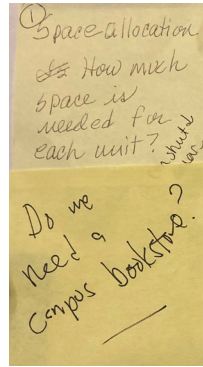 ①
Space allocation
How much
space is
needed for
each unit?
Do we
need a
campus bookstore?